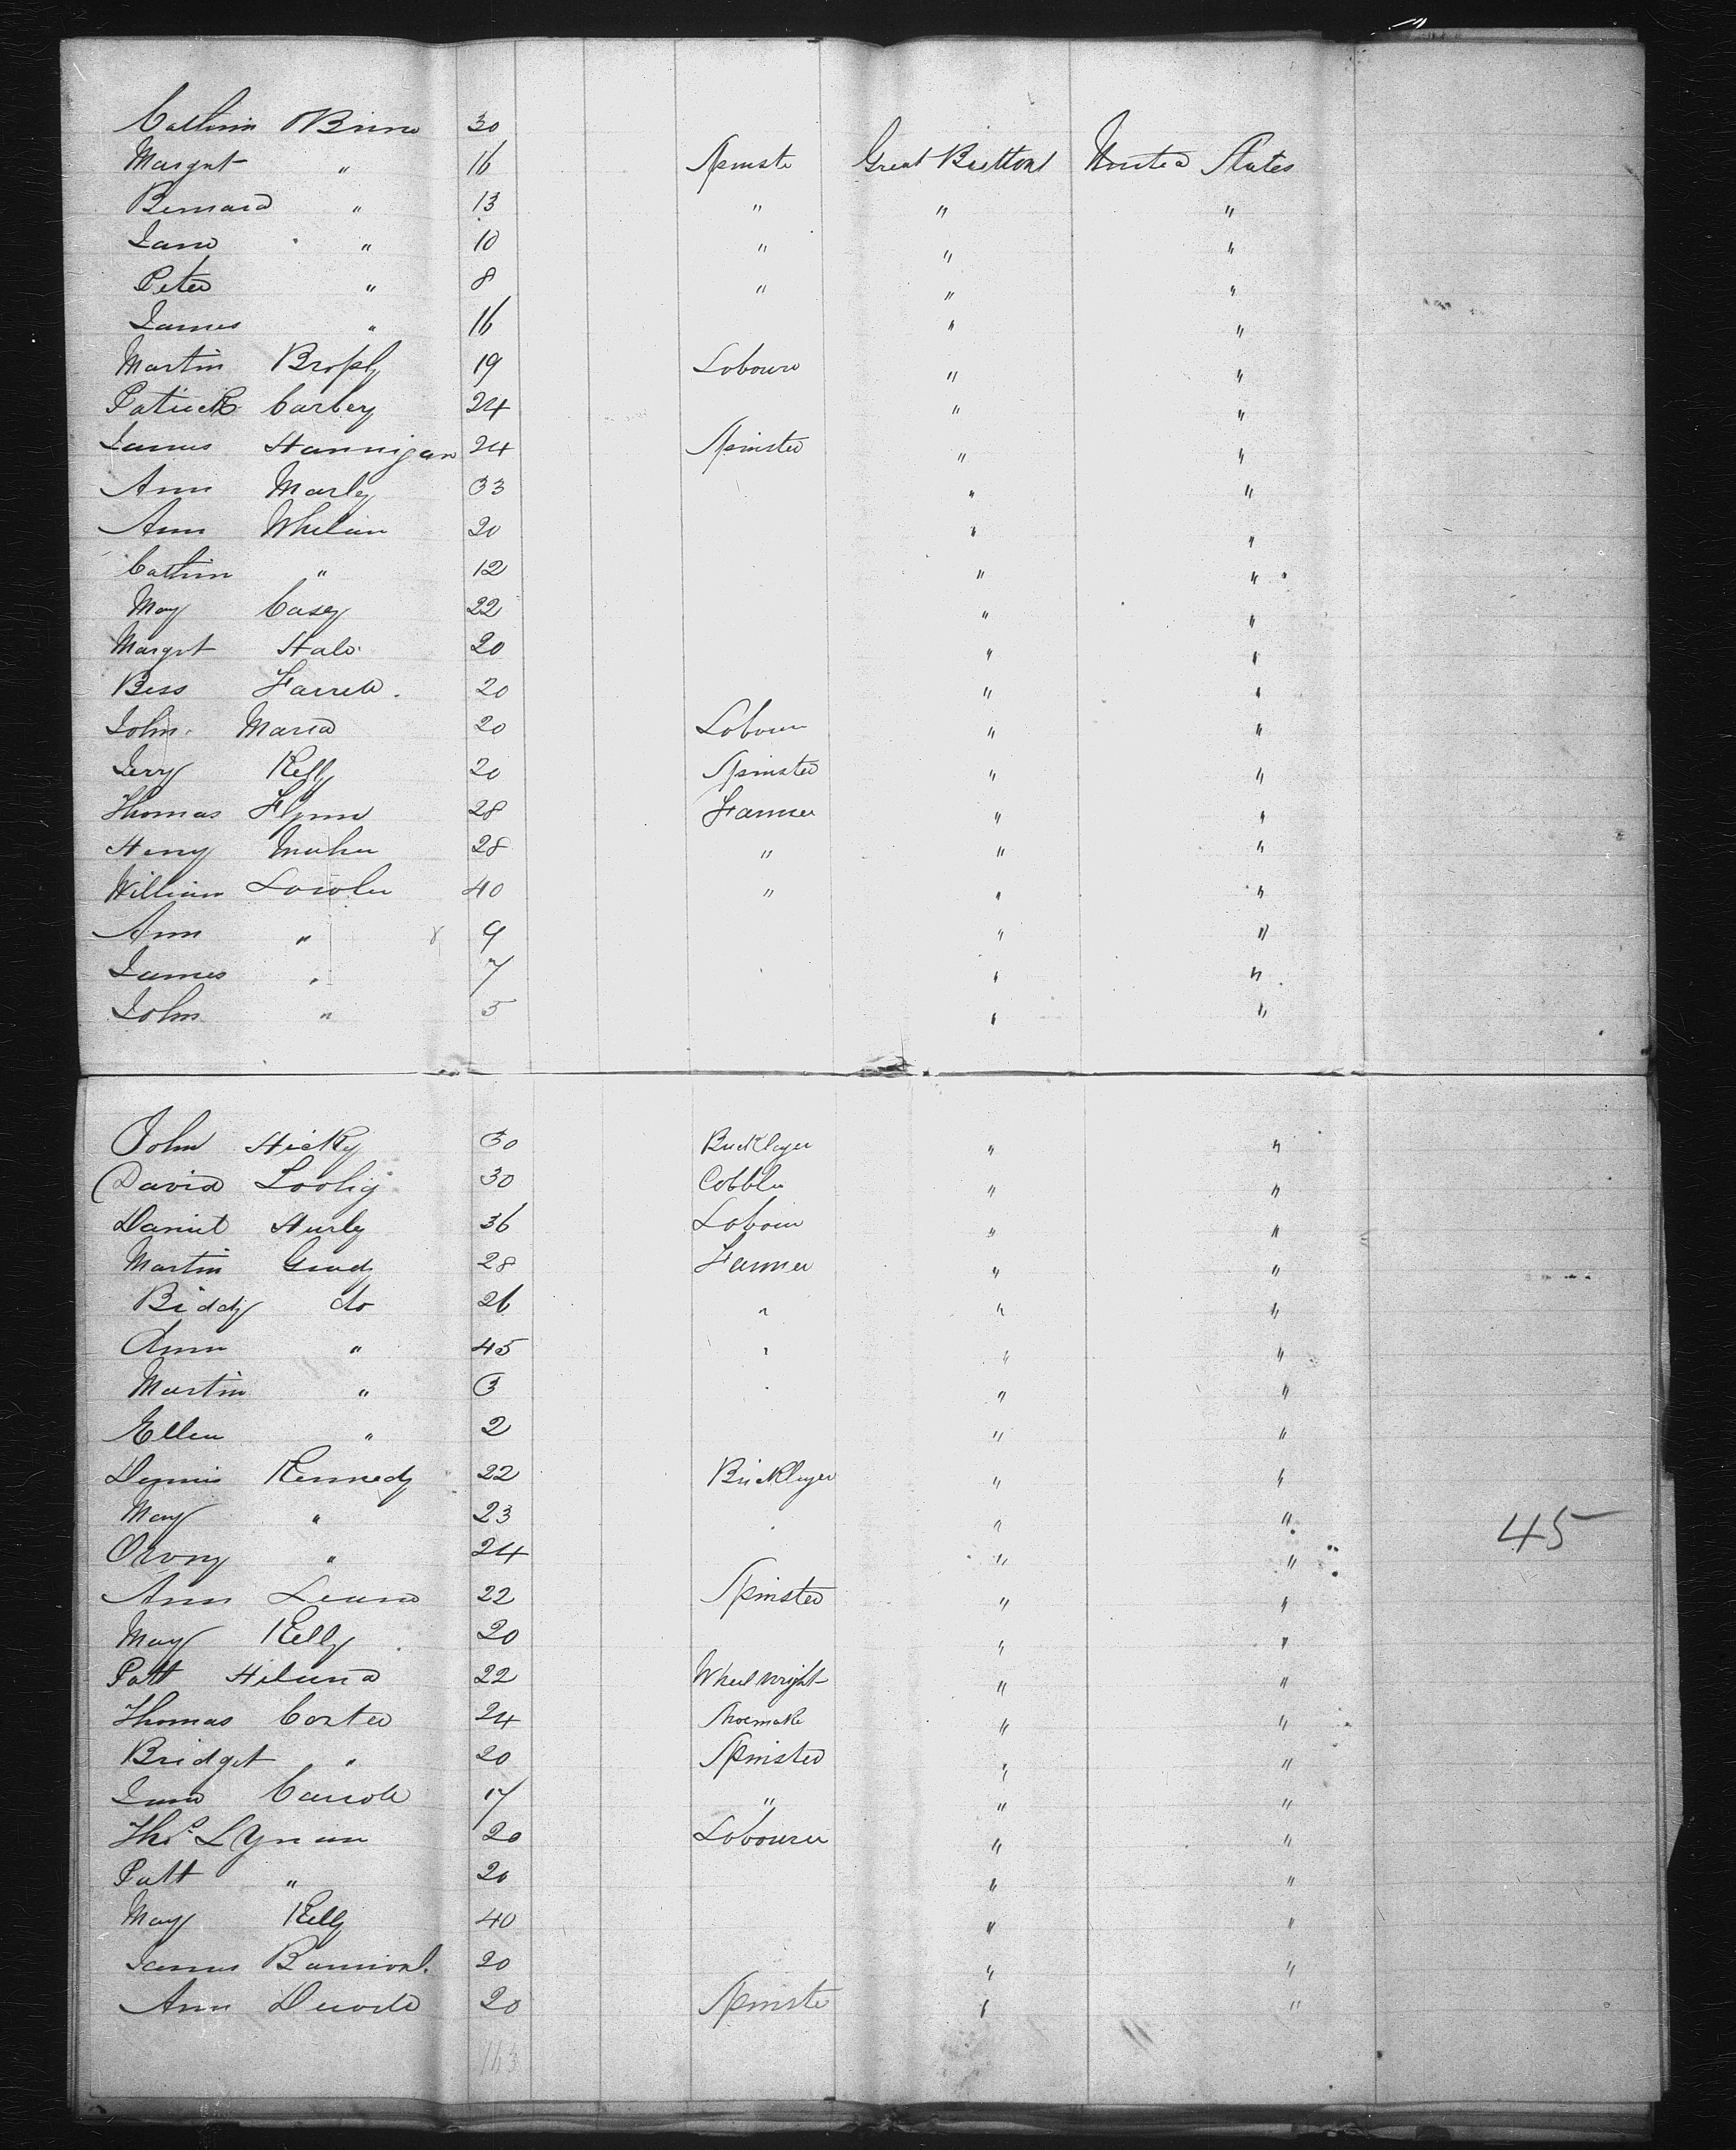 Cathrin OBrine 30
Margrt " 16 Spinste Great Brittont United States
Bernard " 13 " " "
Jane " 10 " " "
Peter " 8 " " "
James " 16 " "
Martin Brophy 19 Laboure " "
Patrick Carbey 24 " "
James Hannigan 24 Spinster " "
Ann Marley 33 " "
Ann Whelan 20 " "
Cathrin " 12 " "
May Casey 22 " "
Margrt Hale 20 " "
Bess Farrell 20 " "
John 20 Labourer " "
Jerry Kelly 20 Spinster " "
Thomas Flynn 28 Farmer " "
Henry Maher 28 " " "
William Lawler 40 " " "
Ann " 9 " "
James " 7 " "
John " 5 " "
John Hicky 30 Bricklayer " "
David 30 Cobbler " "
Daniel Hurley 36 Labour " "
Martin Grady 28 Farmer " "
Biddy do 26 " " "
Ann " 45 " " "
Martin " 3 " "
Ellen " 2 " "
Dennis Kennedy 22 Bricklayer " "
May " 23 " "
" 24 " " 45
Ann 22 Spinster " "
May Kelly 20 " "
Patt 22 Wheel wright " "
Thomas Carter 24 Shoemake " "
Bridget " 20 Spinster " "
Jane Carroll 17 " " "
Thos Lynan 20 Labourer " "
Patt " 20 " "
May Kelly 40 " "
James 20 " "
Ann 20 Spinste " "
163